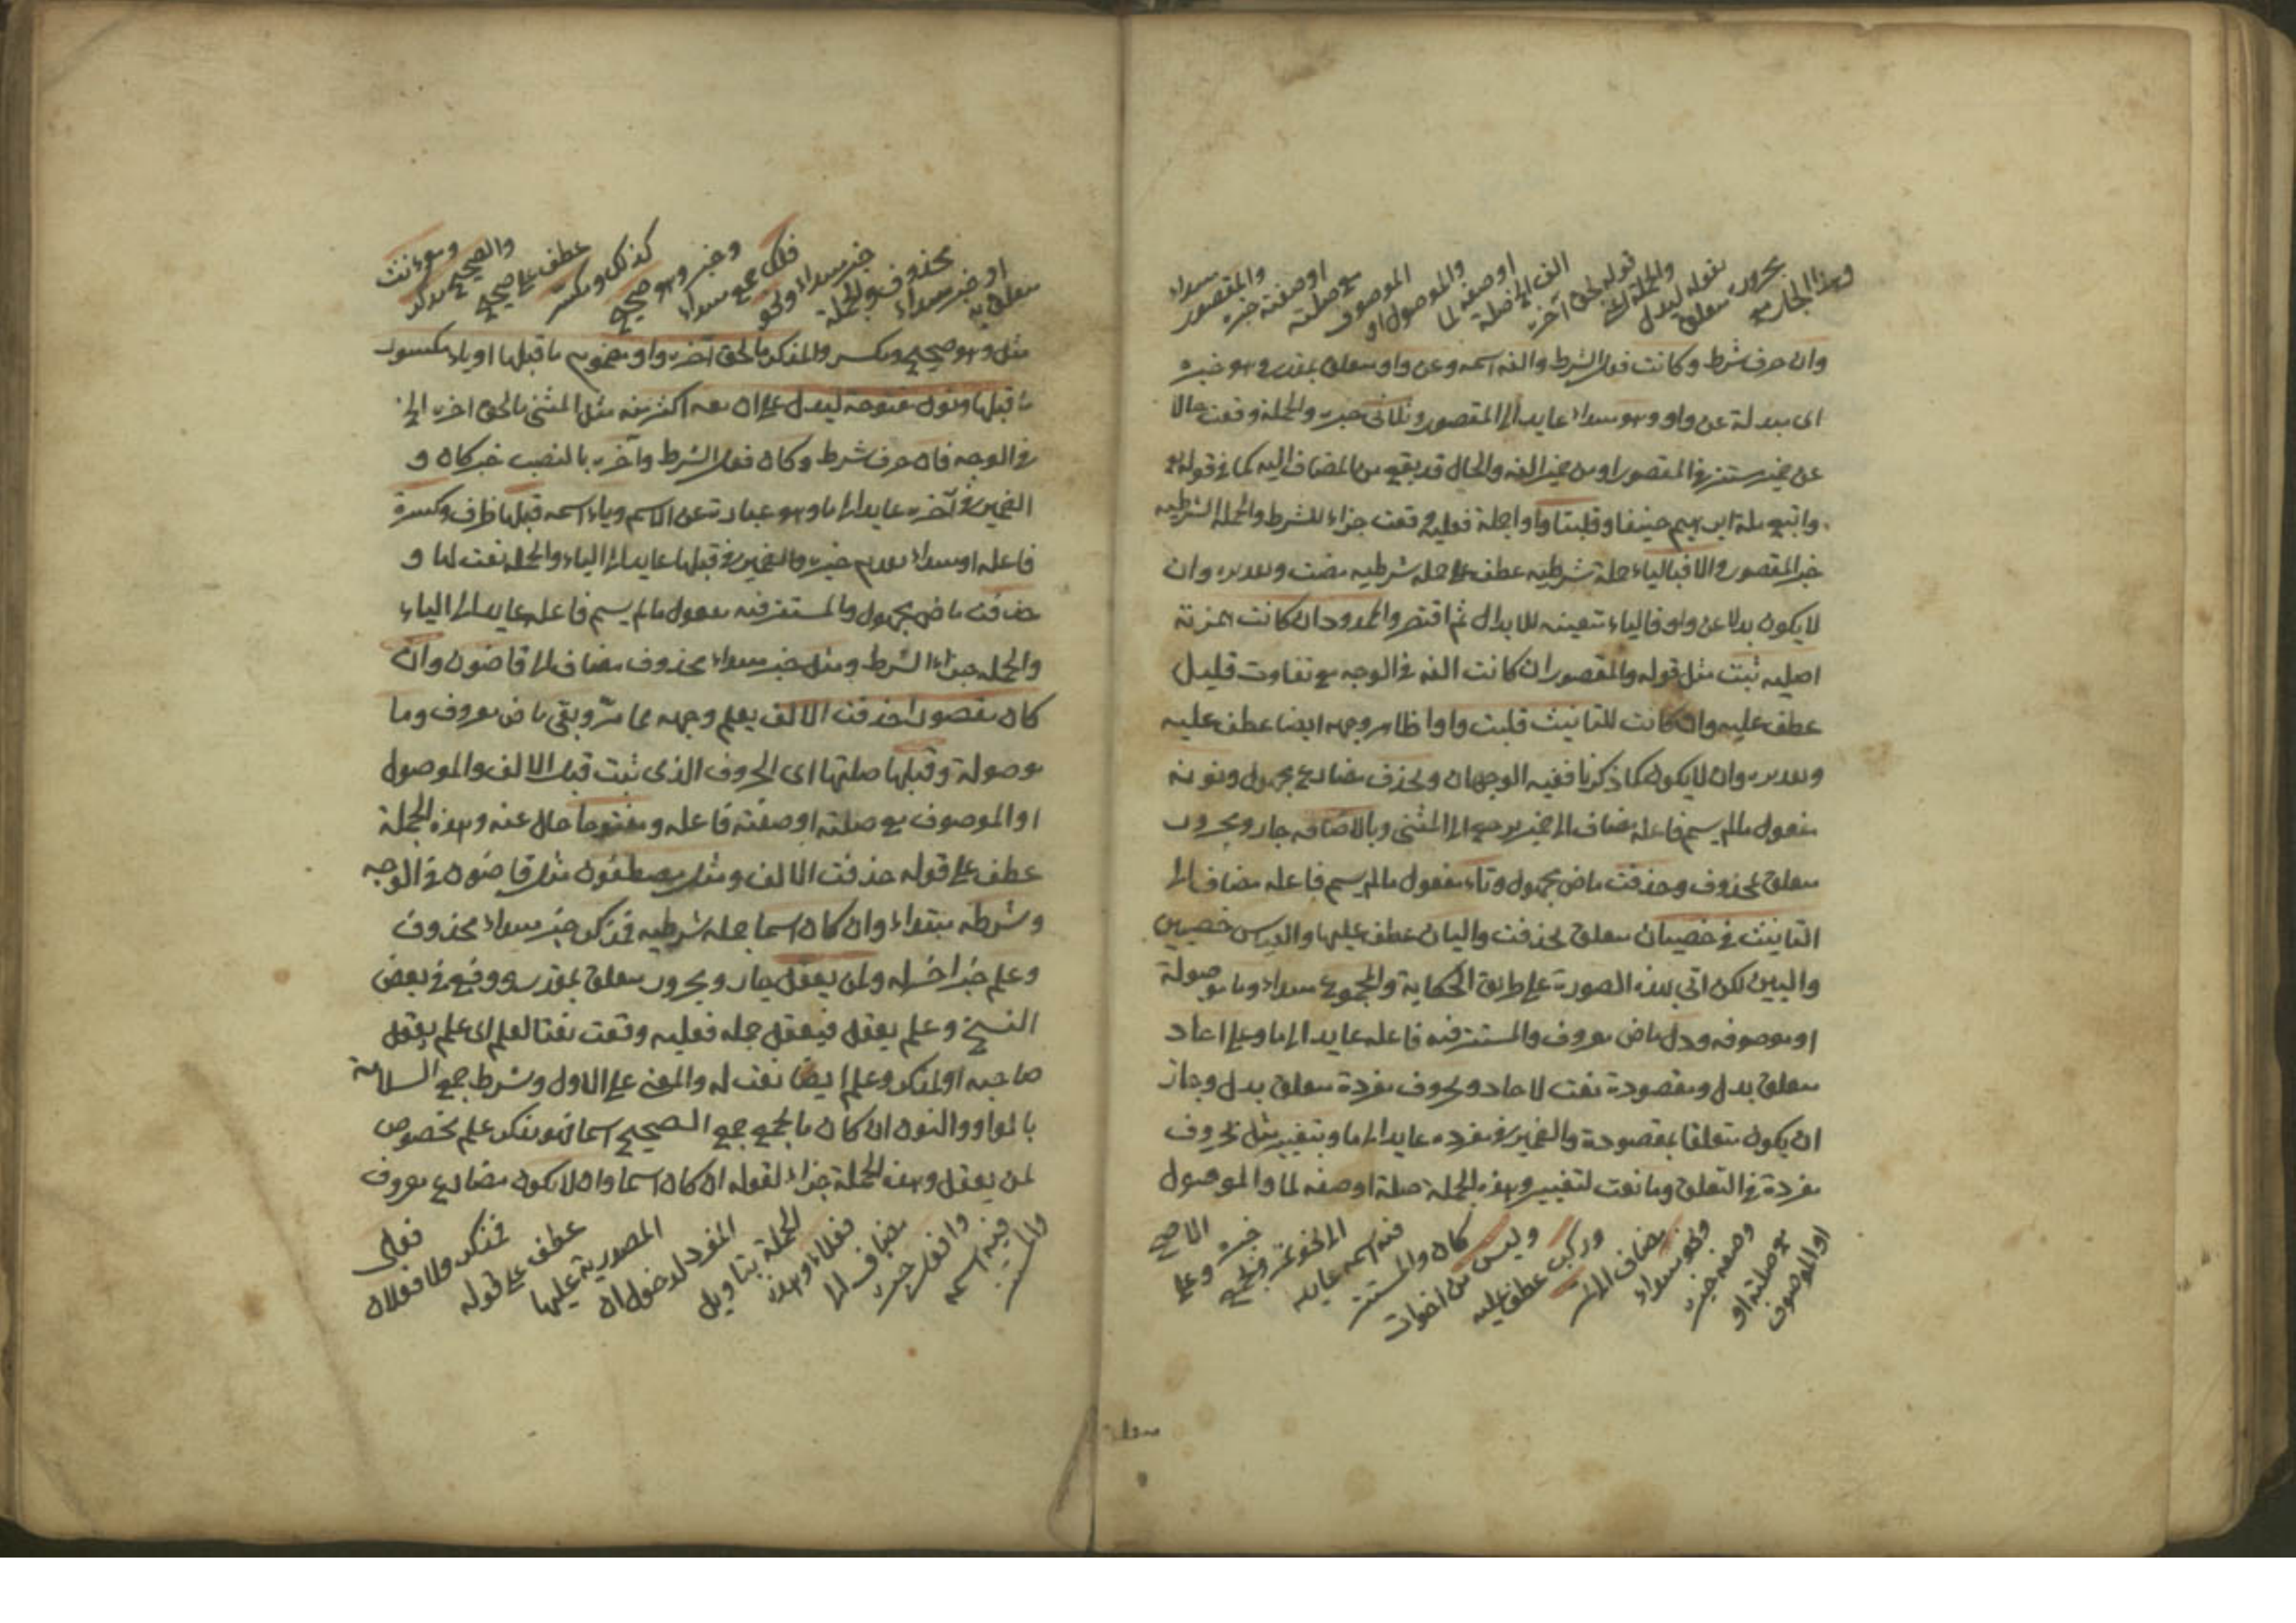 وهذا الجار مع
مجرور متعلق
بقوله ليدل
والجملة اعني
قوله لحق آخره
الف الخ صلة
او صفة لما
والموصول او
الموصوف
مع صلته
او صفته خبره
والمقصور
مبتداء
وان حرف شرط وكانت فعل الشرط والفه اسمه وعن واو متعلق بمقدر هو خبره
اى مبدلة عن واو وهو مبتداء عايد الى المقصور وثلاثى خبره والجملة وقعت حالا
عن ضمير مستتر فى المقصور او من ضمير الفه والحال قد يقع من المضاف اليه كما فى قوله
واتبع ملة ابرهيم حنيفا وقلبتا واوا جملة فعلية وقعت جزاء للشرط والجملة الشرطيه
خبر المقصور والا فبالياء جملة شرطيه عطف على جملة شرطيه مضت وتقديره وان
لا يكون بدلا عن واو فالياء متعينه للابدال ثم اقتصر والممدود ان كانت همزته
اصليه ثبت مثل قوله والمقصور ان كانت الفه فى الوجه مع تفاوت قليل
عطف عليه وان كانت للتانيث قلبت واوا ظاهر وجهه ايضا عطف عليه
وتقديره وان لا يكون كما ذكرنا ففيه الوجهان ويحذف مضارع مجهول ونونه
مفعول مالم يسم فاعله مضاف الى ضمير يرجع الى المثنى وبالاضافه جار ومجرور
متعلق بيحذف وحذفت ماض مجهول وتاء مفعول مالم يسم فاعله مضاف الى
التانيث فى خصيان متعلق بحذفت واليان عطف عليها والقياس خصيين
واليين لكن اتى بهذه الصورة على طريق الحكاية والمجموع مبتداء وما موصولة
او موصوفه ودل ماض معروف والمستتر فيه فاعله عايد الى ما وعلى احاد
متعلق بدل ومقصودة نعت لاحاد وبحروف مفردة متعلق بدل وجاز
ان يكون متعلقا بمقصودة والضمير فى مفرده عايد الى ما وبتغيير مثل بحروف
مفردة فى التعلق وما نعت لتغيير وهذه الجملة صلة او صفه لما والموصول
او الموصوف
مع صلته او
وصفه خبره
ونحو مبتداء
مضاف الى تمر
وركب عطف عليه
وليس من اخوات
كان والمستتر
فيه اسمه عايد
الى نحو تمر وبجمع
خبره وعلى
الاصح
متعلق
متعلق به
او خبر مبتداء
محذوف والجملة
خبر مبتداء ونحو
فلك جمع مبتداء
وخبر وهو صحيح
كذلك ومكسر
عطف على صحيح
والصحيح لمذكر
ومؤنث
مثل وهو صحيح ومكسر والمذكر ما لحق آخره واو مضموم ما قبلها او ياء مكسور
ما قبلها ونون مفتوحة ليدل على ان معه اكثر منه مثل المثنى ما لحق اخره الخ
فى الوجه فان حرف شرط وكان فعل الشرط وآخره بالنصب خبر كان و
الضمير فى آخره عايد الى ما وهو عبارة عن الاسم وياء اسمه قبلها ظرف وكسرة
فاعله او مبتداء تقدم خبره والضمير فى قبلها عايد الى الياء والجملة نعت لها و
حذفت ماض مجهول والمستتر فيه مفعول مالم يسم فاعله عايد الى الياء
والجملة جزاء الشرط ومثل خبر مبتداء محذوف مضاف الى قاضون وان
كان مقصورا حذفت الالف يعلم وجهه مما مرّ وبقى ماض معروف وما
موصولة وقبلها صلتها اى الحروف الذى ثبت قبل الالف والموصول
او الموصوف مع صلته او صفته فاعله ومفتوحا حال عنه وهذه الجملة
عطف على قوله حذفت الالف ومثل مصطفون مثل قاضون فى الوجه
وشرطه مبتداء وان كان اسما جملة شرطيه فمذكر خبر مبتداء محذوف
وعلم خبر اخر له ولمن يعقل جار ومجرور متعلق بمقدر ووقع فى بعض
النسخ وعلم يعقل فيعقل جملة فعليه وقعت نعتا لعلم اى علم يعقل
صاحبه او لمذكر وعلم ايضا نعت له والمعنى على الاول وشرط جمع السلامة
بالواو والنون ان كان ما يجمع جمع الصحيح اسما فهو مذكر علم مخصوص
لمن يعقل وهذه الجملة جزاء لقوله ان كان اسما وان لا يكون مضارع معروف
والمستتر
فيه اسمه
وافعل خبره
مضاف الى
فعلاء وهذه
الجملة بتاويل
المفرد لدخول ان
المصدرية عليها
عطف على قوله
فمذكر ولا فعلان
فعلى